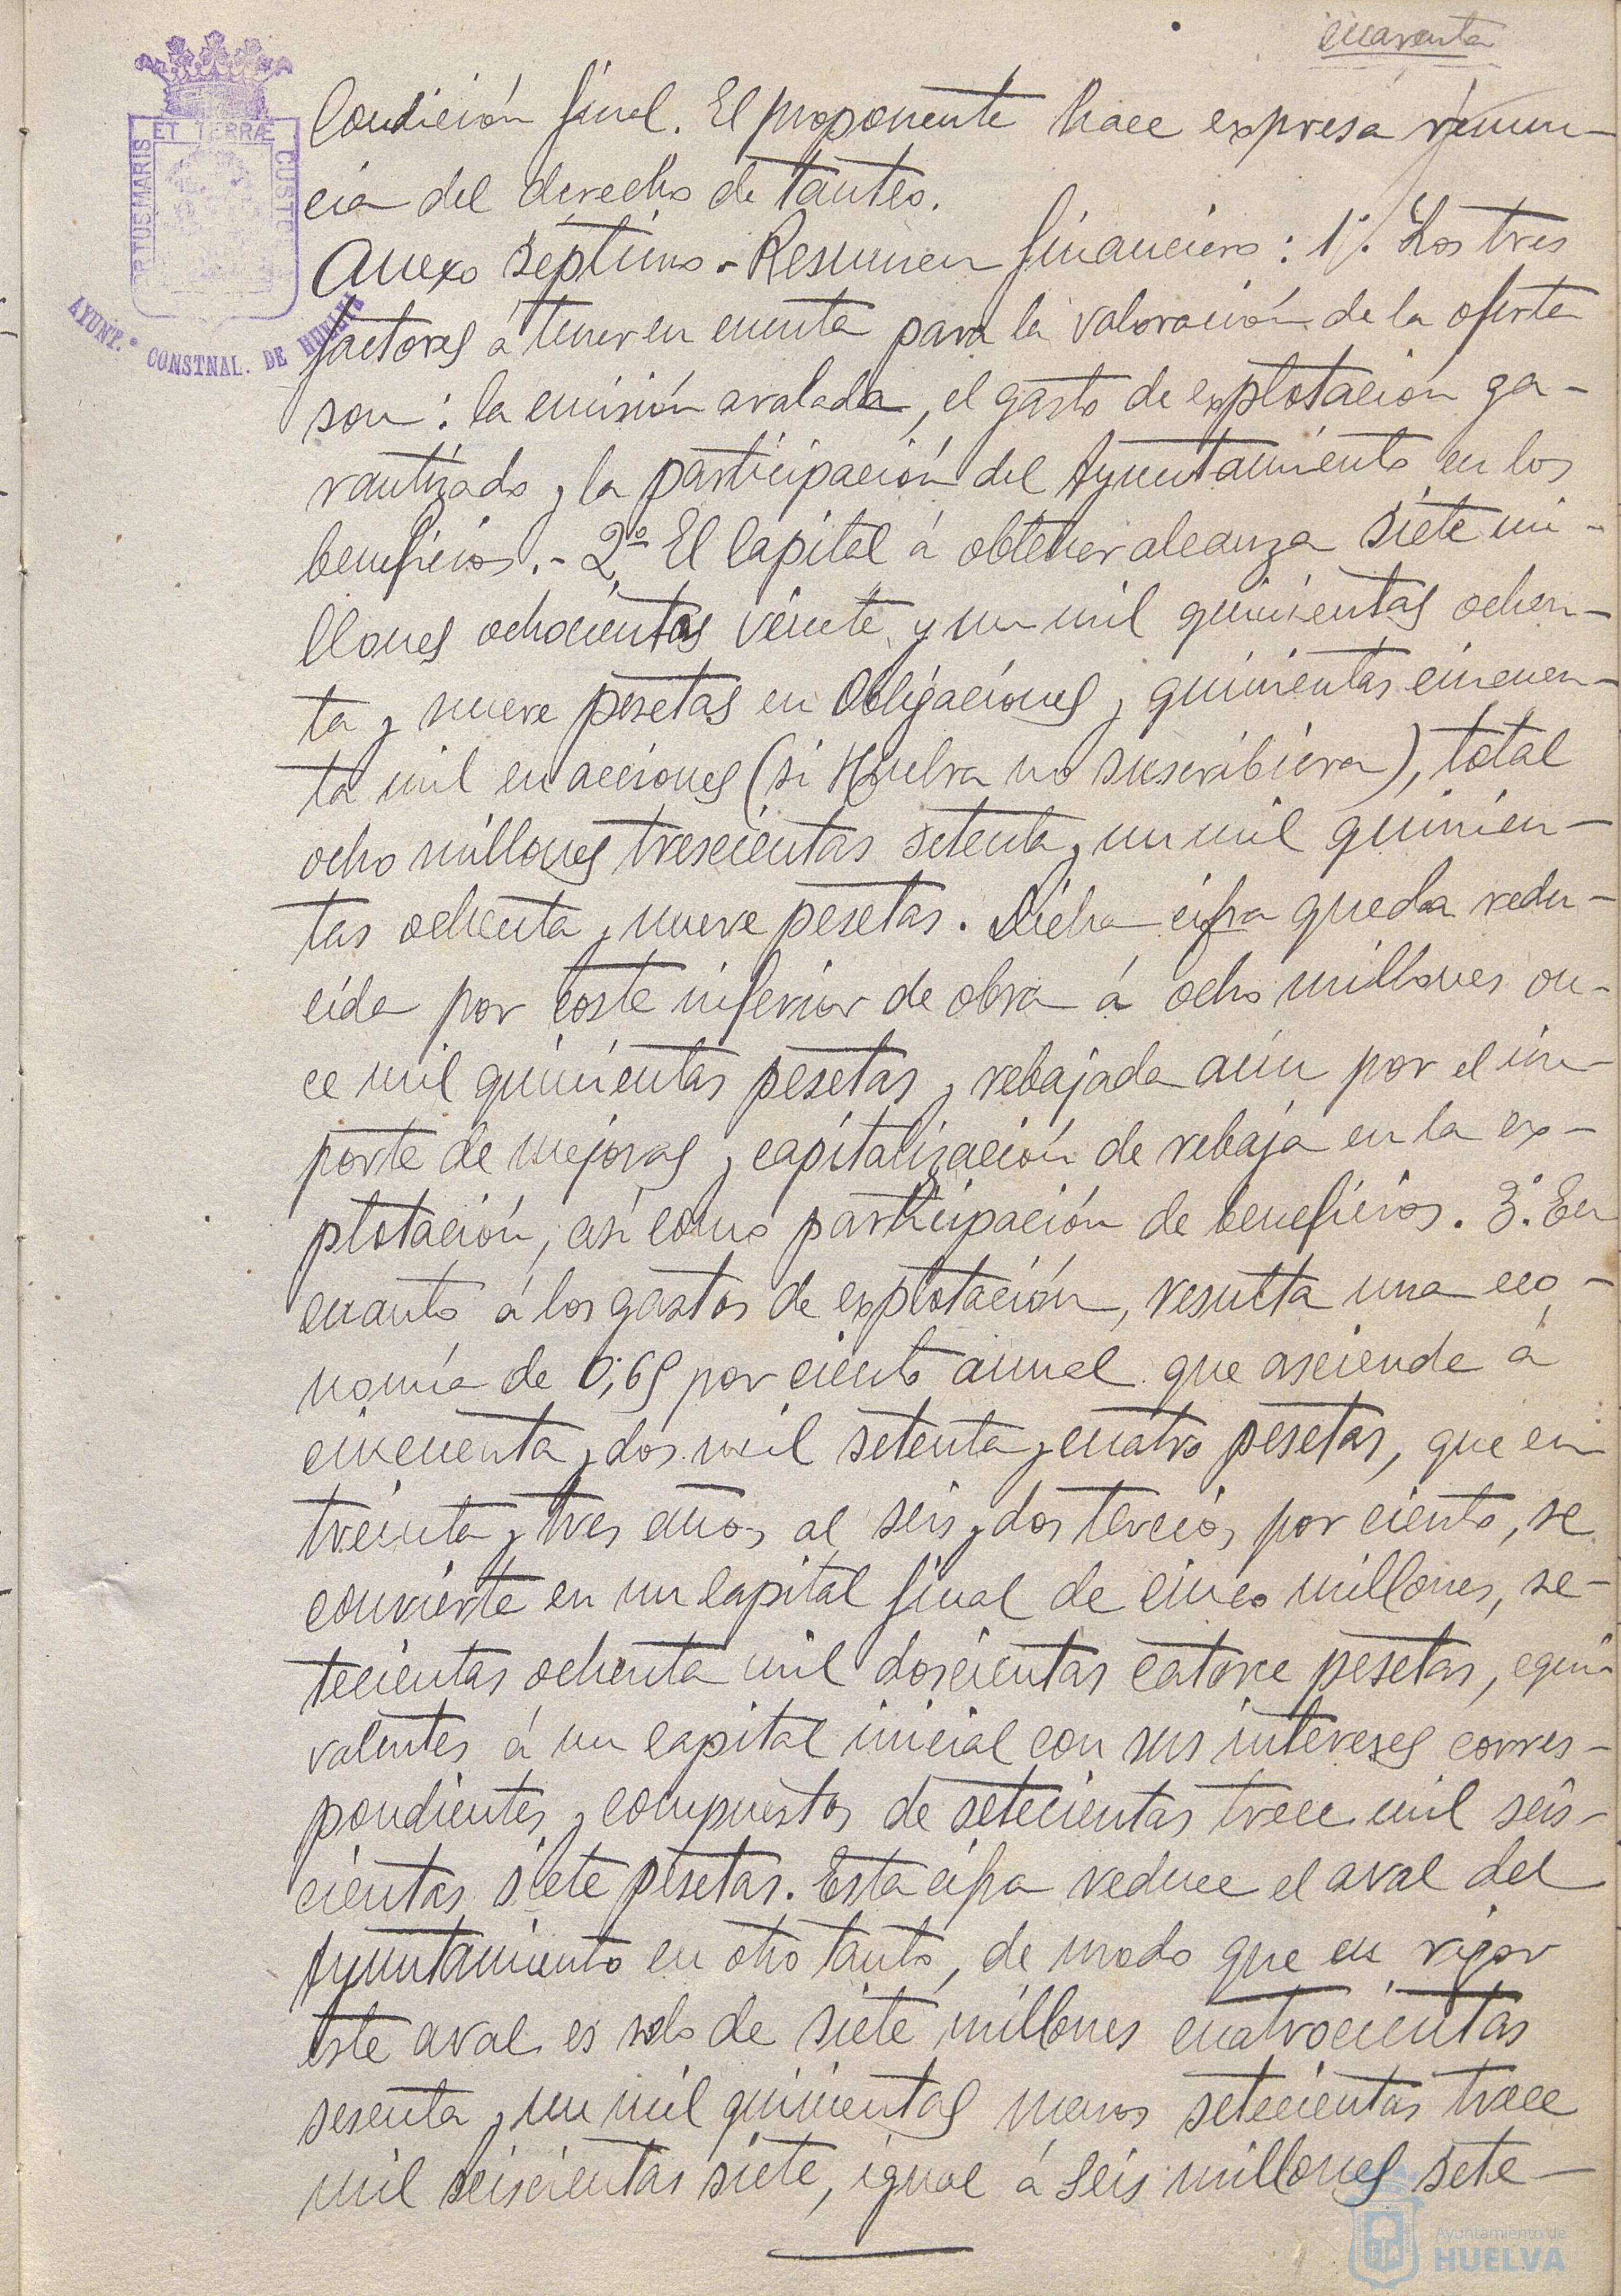 cuarenta
Condición final. El proponente hace expresa renun-
cia del derecho de tanteo.
Anexo séptimo.- Resumen financiero: 1º. Los tres
factores á tener en cuenta para la valoración de la oferta
son: la emisión avalada, el gasto de explotación ga-
rantizado y la participación del Ayuntamiento en los
beneficios.- 2º El Capital á obtener alcanza siete mi-
llones ochocientas veinte y un mil quinientas ochen-
ta y nueve pesetas en Obligaciones y quinientas cincuen-
ta mil en acciones (si Huelva no suscribiera), total
ocho millones trescientas setenta y un mil quinien-
tas ochenta y nueve pesetas. Dicha cifra queda redu-
cida por coste inferior de obra á ocho millones on-
ce mil quinientas pesetas y rebajada aún por el im-
porte de mejoras y capitalización de rebaja en la ex-
plotación, así como participación de beneficios. 3º. En
cuanto á los gastos de explotación, resulta una eco-
nomía de 0,69 por ciento anual que asciende á
cincuenta y dos mil setenta y cuatro pesetas, que en
treinta y tres años al seis y dos tercios por ciento, se
convierte en un capital final de cinco millones, se-
tecientas ochenta mil doscientas catorce pesetas, equi-
valentes á un capital inicial con sus intereses corres-
pondientes y compuestos de setecientas trece mil seis-
cientas siete pesetas. Esta cifra reduce el aval del
Ayuntamiento en otro tanto, de modo que en rigor
este aval es solo de siete millones cuatrocientas
sesenta y un mil quinientas menos setecientas trece
mil seiscientas siete, igual á seis millones sete-
ET TERRÆ
PORTUS MARIS
CUSTO
AYUNT.º CONSTNAL. DE HUELVA
Ayuntamiento de
HUELVA